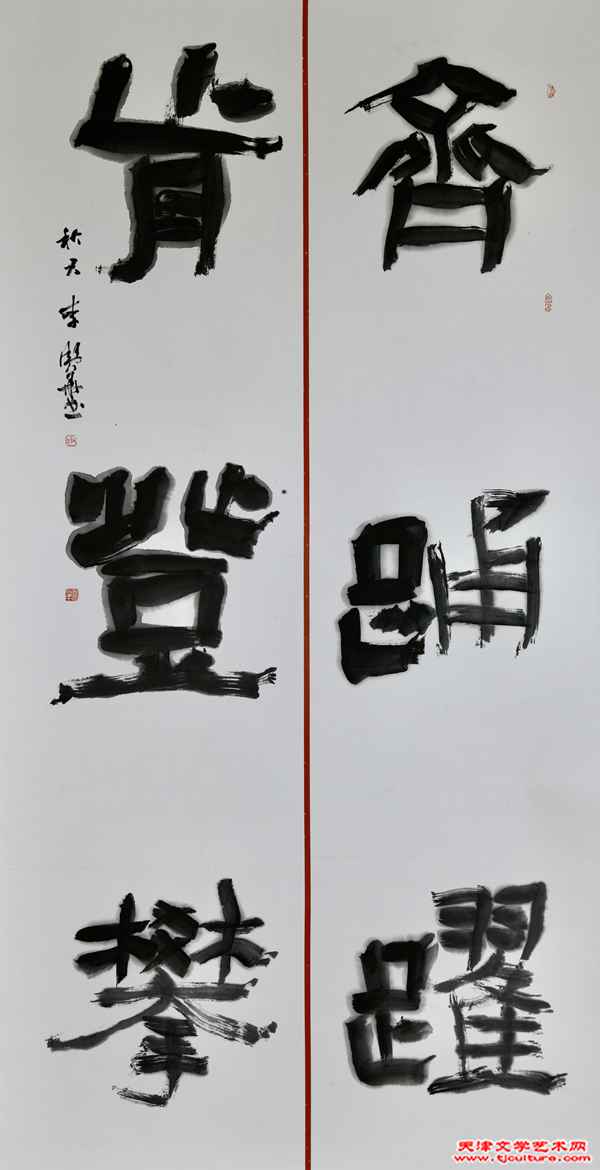 齊踊躍
肯登攀
秋天 李
天津文学艺术网
www.tjculture.com